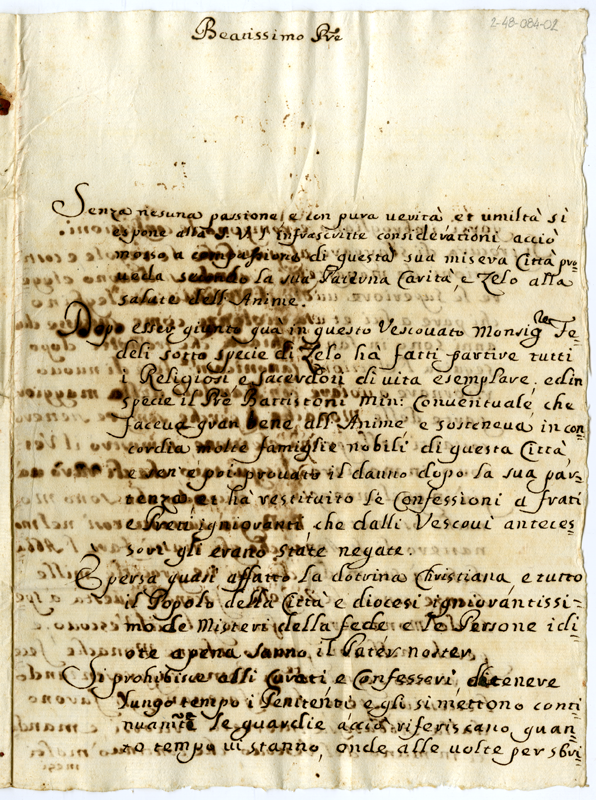 2-48-084-02
Beatissimo Pre
Senza nesuna passione, e con pura uerità, et umiltà si
espone alla S. V. l'infrascritte considerationi acciò
mosso a compassione di questa sua misera Città pro=
ueda secondo la sua Paterna Carità, e Zelo alla
salute dell'Anime.
Dopo esser giunto quà in questo Vescouato Monsig.r Fe=
deli sotto specie di Zelo ha fatti partire tutti
i Religiosi e sacerdoti di vita esemplare, ed in
specie il Pre Battistoni Min: Conuentuale, che
faceua gran bene all'Anime e sosteneua in con=
cordia molte famiglie nobili di questa Città,
e sen'e poi prouato il danno dopo la sua par=
tenza et ha restituito le Confessioni a frati
e Preti ignioranti, che dalli Vescoui anteces=
sori gli erano state negate.
E persa quasi affatto la dotrina Christiana, e tutto
il Popolo della Città e diocesi igniorantissi=
mo de Misteri della fede e le Persone idi=
ote apena sanno il Pater noster,
Si prohibisce alli Curati e Confessori, di tenere
lungo tempo i Penitenti e gli si mettono conti
nuam.te le guardie acciò riferiscano quan=
to tempo ui stanno, onde alle uolte per sbri=